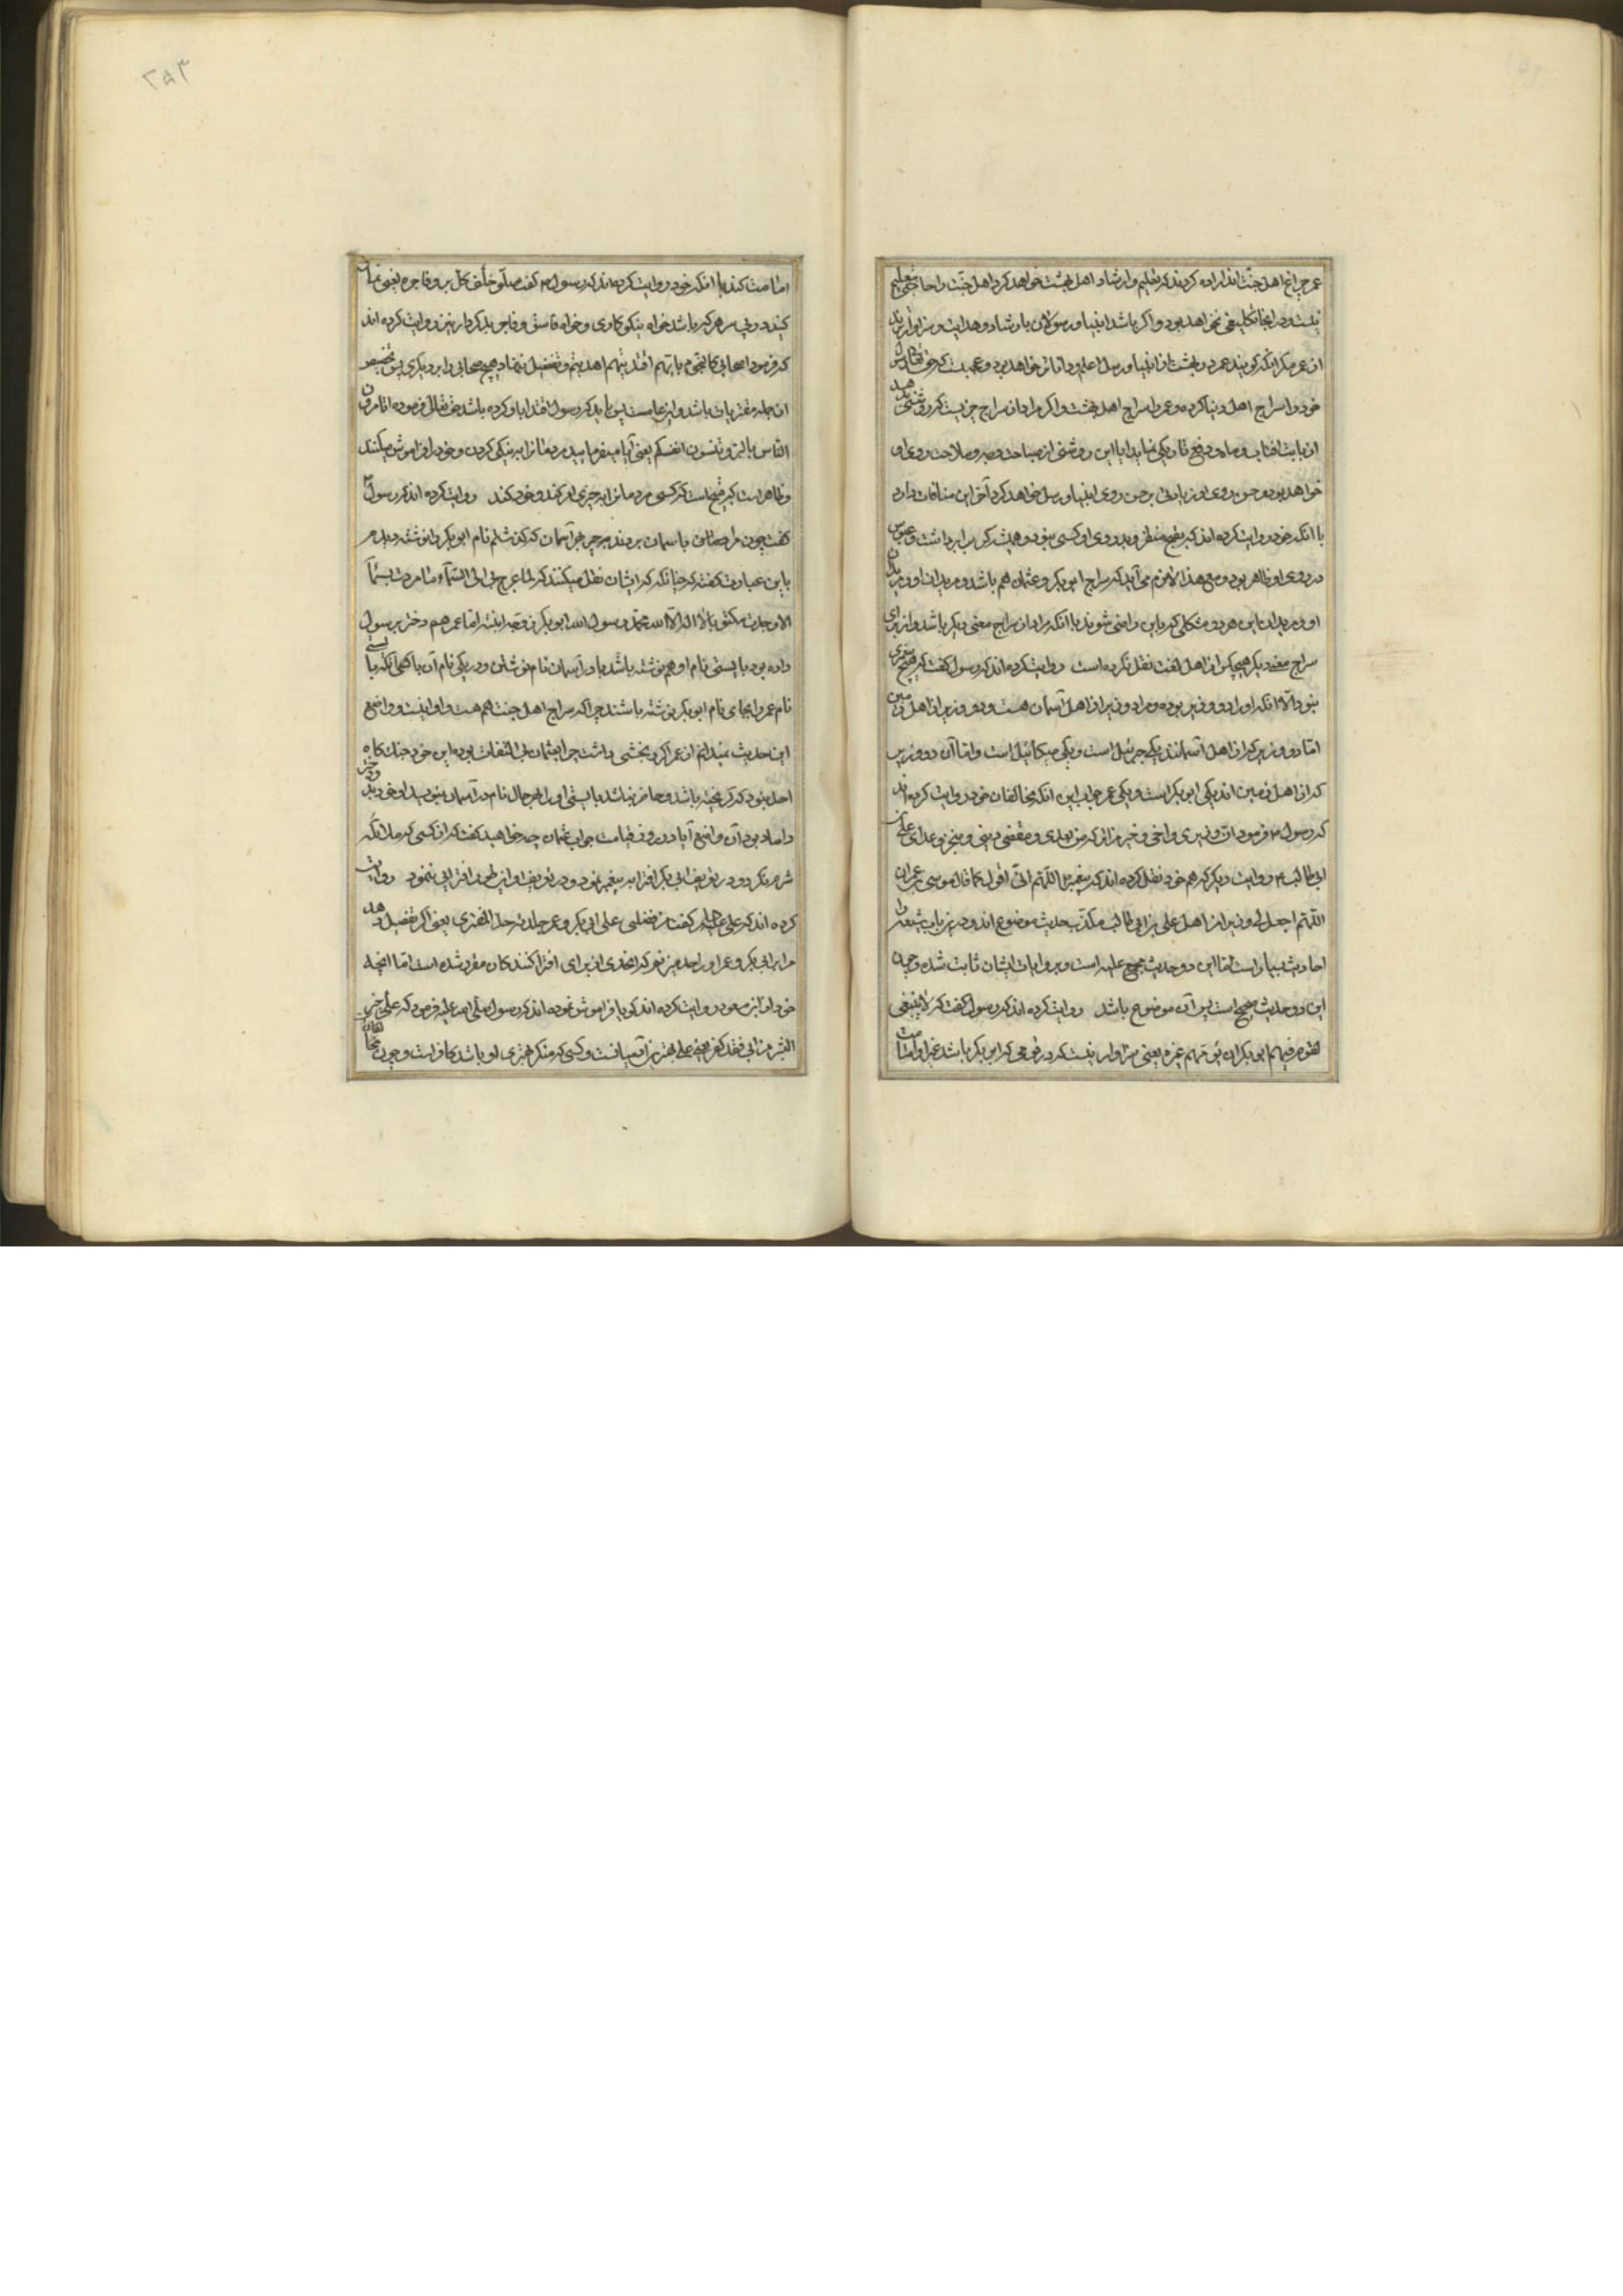 عمر چراغ اهل جنت اند اراده کردند که تعلیم وارشاد اهل بهشت خواهد کرد اهل جنت را حاجتی بتعلیم
نیست ودر انجا تکلیفی نخواهد بود واکر باشد انبیا ورسولان بارشاد وهدایت سزاوارترند
از عمر مکر انکه کویند عمر در بهشت از انبیا ورسل اعلم وداناتر خواهد بود وعجبست که حق تعالی رسول
خود را سراج اهل دنیا کرده وعمر را سراج اهل بهشت واکر مراد از سراج چیزیست که روشنی دهد
از بابت افتاب وماه ودفع تاریکی نماید ایا این روشنی از صباحت وجه وملاحت روی او
خواهد بود وحسن روی او زیادتی بر حسن روی انبیا ورسل خواهد کرد آخر این منافات دارد
با انکه خود روایت کرده اند که بقبح منظر وبد رویی او کسی نبود وهمیشه کره بر ابرو داشت وعبوس
در روی او ظاهر بود ومع هذا لازم می آید که سراج ابو بکر وعثمان هم باشد ومریدان او ومریدان
او ومریدان این هر دو مشکل که باین راضی شوند با انکه مراد از سراج معنی دیکر باشد واز برای
سراج معنی دیکر هیچکس از اهل لغت نقل نکرده است روایت کرده اند که رسول گفت که هیچ پیغمبری
نبود الا انکه او را دو وزیر بوده ومرا دو وزیر از اهل آسمان هست ودو وزیر از اهل زمین
اما دو وزیر که از اهل آسمانند یکی جبرئیل است ویکی میکائیل است واما آن دو وزیر
که از اهل زمین اند یکی ابو بکر است ویکی عمر جواب این انکه مخالفان خود روایت کرده اند
که رسول فرمود ان وزیری واخی وخیر من اترکه من بعدی ویقضی دینی وینجز وعدای علی بن
ابی طالب وروایت دیکر که هم خود نقل کرده اند که پیغمبر اللهم انی اقول کما قال موسی بن عمران
اللهم اجعل لی وزیرا من اهل علی بن ابی طالب مکذب حدیث موضوع اند ودر این باب شیعه را
احادیث بسیار است اما این دو حدیث مجمع علیه است وبروایات ایشان ثابت شده وچون
این دو حدیث صحیح است پس آن موضوع باشد روایت کرده اند که رسول گفت که لا ینبغی
لقوم فیهم ابو بکر ان یؤمهم غیره یعنی سزاوار نیست که در قومی که ابو بکر باشد غیر او امامت
امامت کند با انکه خود روایت کرده اند که رسول گفت صلوا خلف کل بر وفاجر یعنی نماز
کنید در پی سر هر که باشد خواه نیکوکاری وخواه فاسق وفاجر بدکردار نیز روایت کرده اند
که فرمود اصحابی کالنجوم بایهم اقتدیتم اهدیتم وتفضیل ننهاد هیچ صحابی را بر دیکری پس تخصیص
از جمله مفتریات باشد واین عامست پس باید که رسول اقتدا باو کرده باشد حق تعالی فرموده اتامرون
الناس بالبر وتنسون انفسکم یعنی آیا میفرمایید مردمانرا به نیکی کردن وخود را فراموش میکنند
وظاهر است که قبیحاست که کسی مردمانرا بچیزی امر کند وخود نکند روایت کرده اند که رسول
گفت چون مرا بمعراج باسمان بردند بهر چیز آسمان که گذشتم نام ابو بکر را نوشته دیدم
باین عبارت گفته که چنانکه که ایشان نقل میکنند که لما عرج بی الی السماء ما مررت بسماء
الا وجدت مکتوبا لا اله الا الله محمد رسول الله ابو بکر اما عمر هم دختر برسول
داده بود بایستی نام او هم نوشته باشد یا در آسمان نام نوشتن ودر یکی نام آن یا کم آنکه بایستی
نام عمر را بجای نام ابو بکر نوشته باشند چرا که سراج اهل جنت هم هست واو نیست وواضع
این حدیث نمیدانم از عمر اکر رنجشی داشت چرا بعثمان بی التفات بوده این خود جنگ گاه
احد نبود که گریخته باشد وحاضر نباشد بایستی او را بهر حال نام در آسمان بنویسد او خود بدو دختر
داماد بود آن واضع آیا در روز قیامت جواب عثمان چه خواهید گفت که از کسی که ملائکه
شرم نکرد ودر تعریف ابی بکر افترا بر پیغمبر نمود ودر تعریف او این طرفه افترائی ننمود روایت
کرده اند که علی علیه السلام گفت من فضلنی علی ابی بکر وعمر جلدته حد المفتری یعنی اکر تفضیل دهد
مرا بر ابی بکر وعمر او را حد میزنم که انحدی از برای افترا کنندکان مقرر شده است اما انچه
خود از ابن مسعود روایت کرده اند کویا فراموش نموده اند که رسول صلی الله علیه فرمود که علی خیر
البشر من ابی فقد کفر یعنی علی بهترین آدمیانست وکسی که منکر بهتری او باشد کافر است وچون